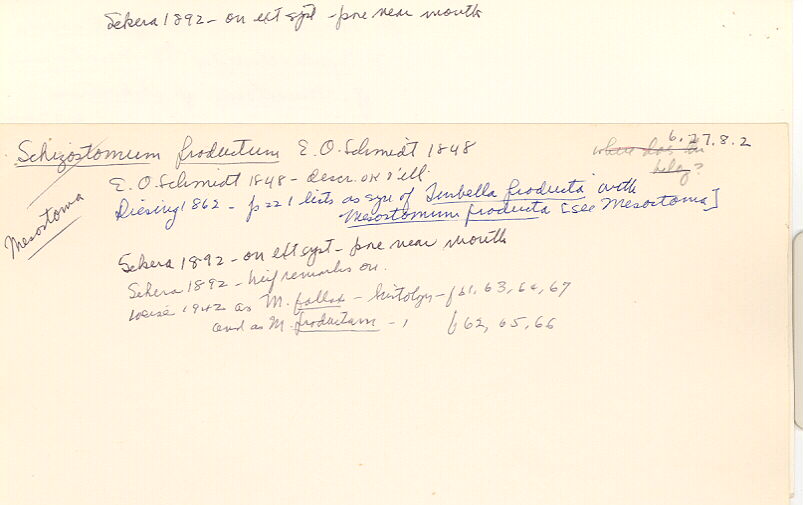 Sekera 1892 - on ext syst - pore near mouth
Schizostomum productum E. O. Schmidt 1848
6.77.8.2
where does this belong?
E. O. Schmidt 1848 - descr. ok & ill.
Diesing 1862 - p 221 lists as syn of Turbella producta with
Mesostomum producta [see Mesostoma]
Mesostoma
Sekera 1892 - on ext syst - pore near mouth
Sekera 1892 - brief remarks on.
1942 as M. fallax - histology - p 61, 63, 64, 67
and as M. productum - , p 62, 65, 66